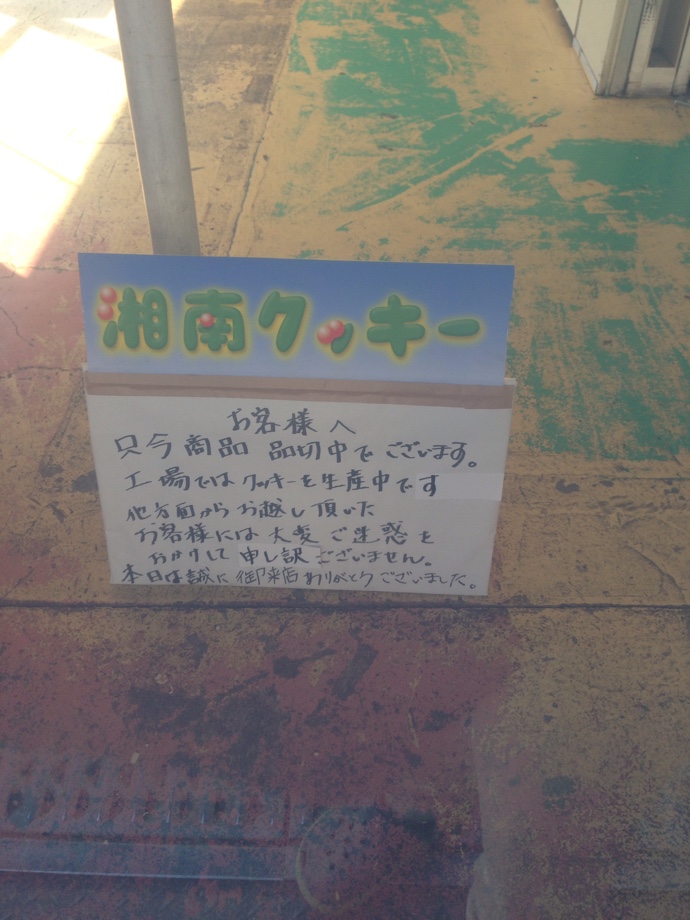 湘南クッキー
お客様へ
只今商品 品切中でございます。
工場ではクッキーを生産中です
他方面からお越し頂いた
お客様には大変ご迷惑を
おかけして申し訳ございません。
本日は誠に御来店ありがとうございました。